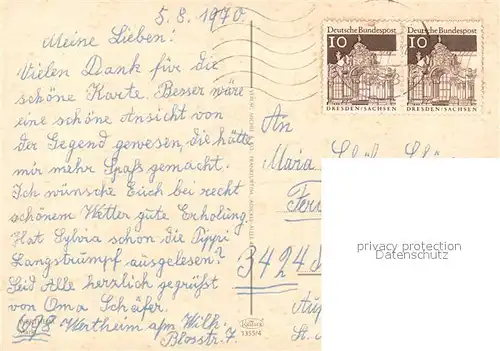 5.8.1970.
Meine Lieben!
Vielen Dank für die
schöne Karte. Besser wäre
eine schöne Ansicht von
der Gegend gewesen, die hätte
mir mehr Spaß gemacht.
Ich wünsche Euch bei recht
schönem Wetter gute Erholung.
Hat Sylvia schon die Pippi
Langstrumpf ausgelesen?
Seid Alle herzlich gegrüßt
von Oma Schäfer.
698 Wertheim a/m. Wilh.
Blosstr. 7
Deutsche Bundespost
10
DRESDEN/SACHSEN
Deutsche Bundespost
10
DRESDEN/SACHSEN
An
Maria
Fer
3424
privacy protection
DATENSCHUTZ
1355/4